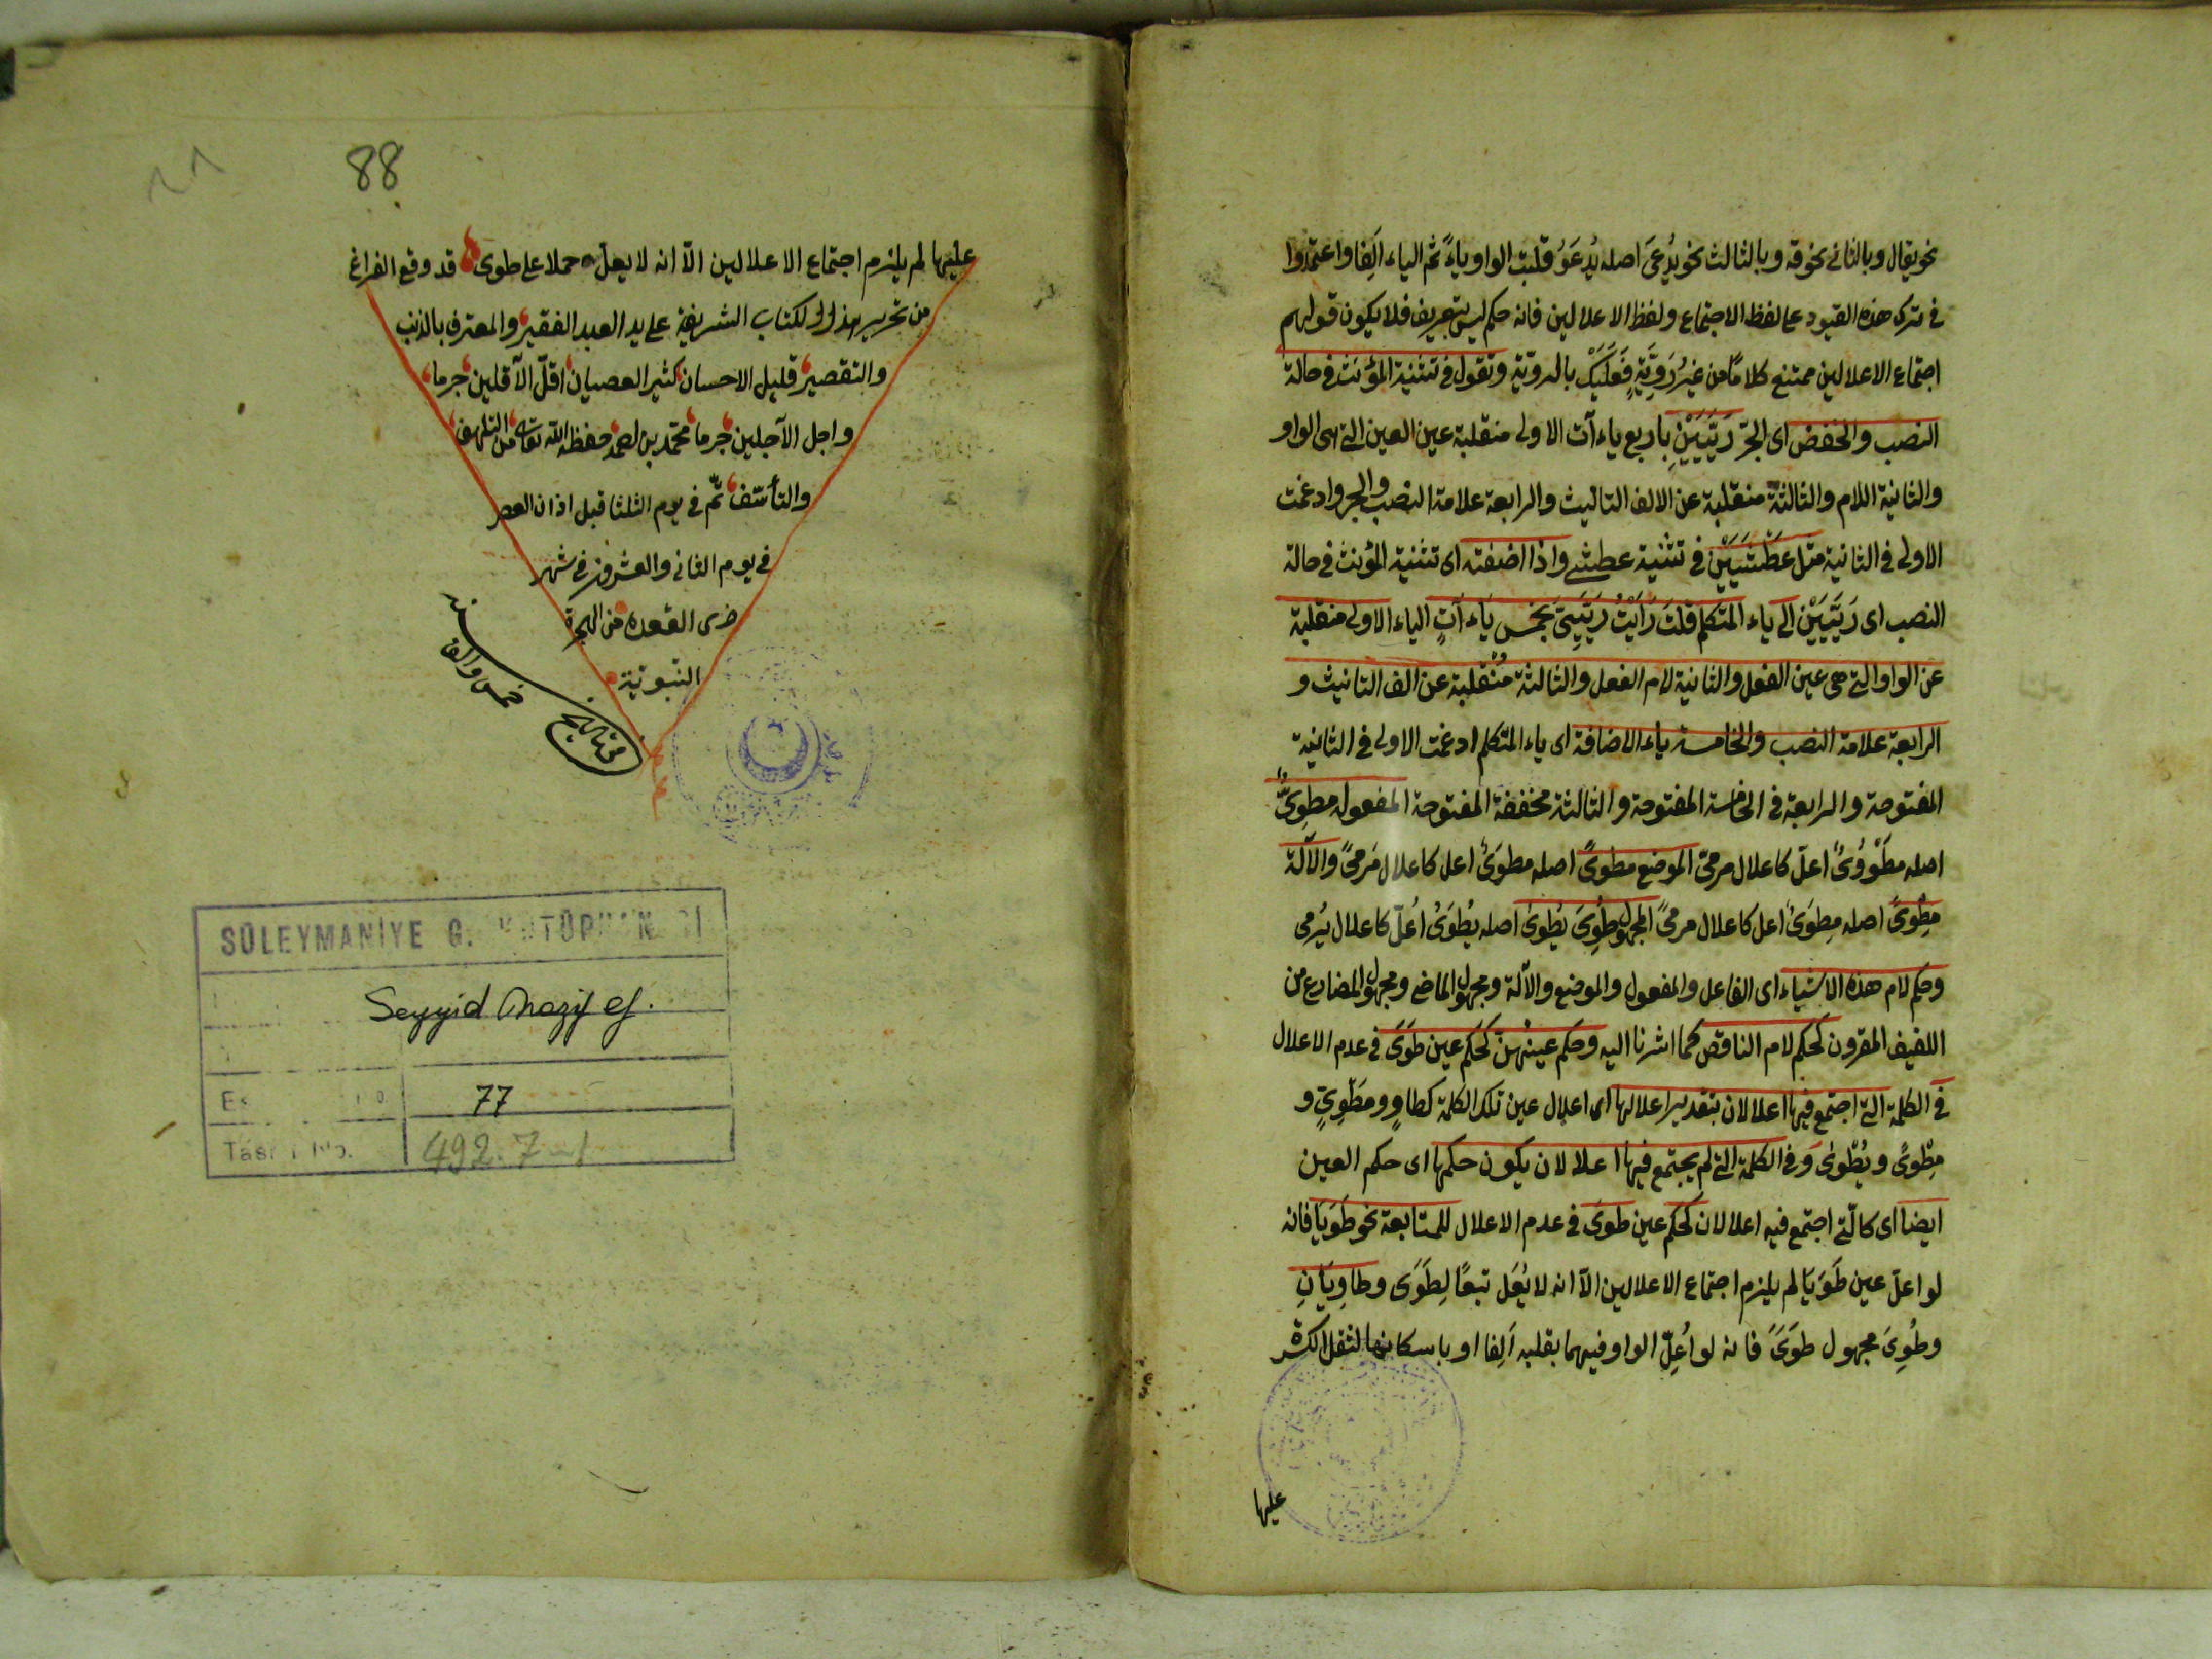 نحو يقال وبالثانى نحو قه وبالثالث نحو يُدعَى اصله يُدعَوُ قلبت الواو ياءً ثم الياء اَلِفا واعتمدوا
فى ترك هذه القيود على لفظ الاجتماع ولفظ الاعلالين فانه حكم ليس بتعريف فلا يكون قولهم
اجتماع الاعلالين ممتنع كلاما من غير رَوِيَّةٍ فَعَلَيْكَ بالروية وتقول فى تثنية المؤنث فى حالة
النصب والخفض اى الجرّ رَيَّيَيْنِ باربع ياءآت الاولى منقلبة عين العين التى هى الواو
والثانية اللام والثالثة منقلبة عن الالف التانيث والرابعة علامة النصب والجر وادغمت
الاولى فى الثانية مثل عَطْشَيَيْنِ فى تثنية عطشى واذا اضفته اى تثنية المؤنث فى حالة
النصب اى رَيَّيَيْنِ الى ياء المتكلم قلتَ رَاَيْتُ رَيَّيَىَّ بخمس ياءآتٍ الياء الاولى منقلبة
عن الواو التى هى عين الفعل والثانية لام الفعل والثالثة مُنْقلبة عن الف التانيث و
الرابعة علامة النصب والخامسة ياء الاضافة اى ياء المتكلم ادغمت الاولى فى الثانية
المفتوحة والرابعة فى الخامسة المفتوحة والثالثة مخففة المفتوحة المفعول مطوِىٌّ
اصله مَطْوُوىٌ اعلّ كاعلال مرمىّ الموضع مطوىً اصله مطوَىٌ اعل كاعلال مَرمىً والآلة
مِطْوىً اصله مِطوَىٌ اعل كاعلال مرمىً المجهول طُوِىَ يُطوىٰ اصله يُطوَىُ اُعلّ كاعلال يُرمى
وحكم لام هذه الاشياء اى الفاعل والمفعول والموضع والآلة ومجهول الماضى ومجهول المضارع من
اللفيف المقرون كحكم لام الناقص كما اشرنا اليه وحكم عينهنّ كحكم عين طَوَى فى عدم الاعلال
فى الكلمة التى اجتمع فيها اعلالان بتقدير اعلالها اى اعلال عين تلك الكلمة كطاوٍ ومَطْوِىٍّ و
مِطْوىً ويُطْوىٰ وَفى الكلمة التى لم يجتمع فيها اعلالان يكون حكمها اى حكم العين
ايضا اى كالتى اجتمع فيه اعلالان كحكم عين طوَى فى عدم الاعلال للمتابعة نحو طَوَيَا فانه
لو اعلّ عين طَوَيَا لم يلزم اجتماع الاعلالين الّا انه لا يُعَل تبعًا لِطَوَى وطاوِيَانِ
وطُوِىَ مجهول طوَىً فانه لو اُعِلّ الواو فيهما بقلبه اَلِفا او باسكانها لثقل الكسرة
عليها
88
عليها لم يلزم اجتماع الاعلالين الّا انه لا يعلّ حملا على طوى قد وقع الفراغ
من تحرير هذا الكتاب الشريفة على يد العبد الفقير والمعترف بالذنب
والتقصير قليل الاحسان كثير العصيان اقلّ الآقلين جرما
واجل الآجلين جرما محمّد بن حفظه الله تعالى من التلهف
والتأسّف تمّ فى يوم الثلثا قبل اذان العصر
فى يوم الثانى والعشرون فى شهر
ذى القعده من الهجرة
النّبويّة
سنه
خمس والف
من تاريخ
SÜLEYMANİYE G. KÜTÜPHANESİ
Seyyid Nazif ef.
77
Tasnif No. 492.7-1